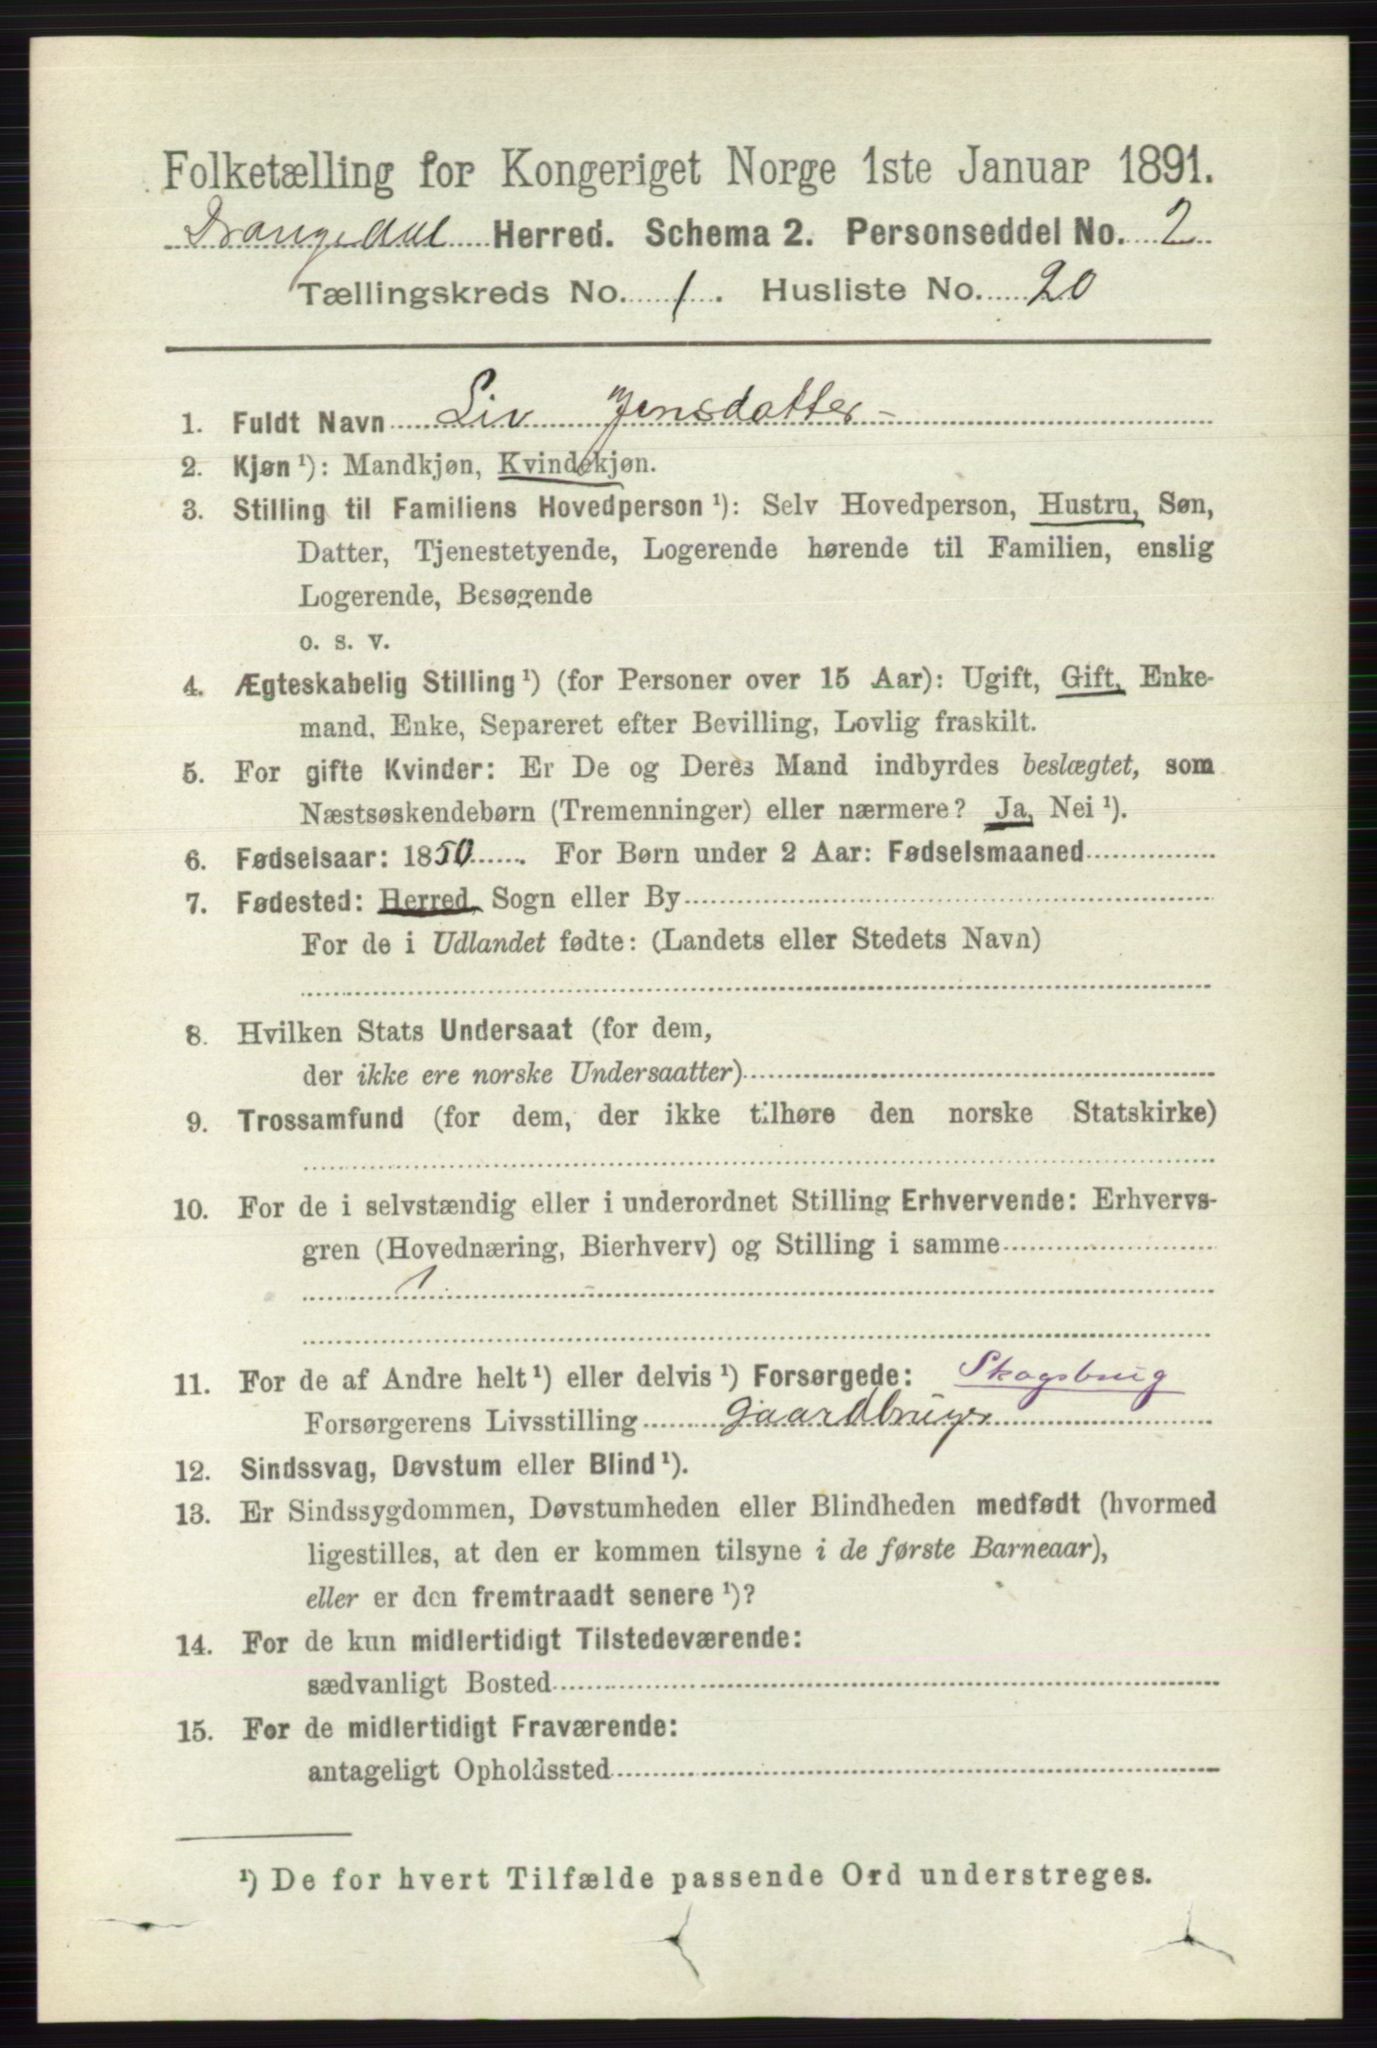 Folketælling for Kongeriget Norge 1ste Januar 1891.
Drangedal Herred. Schema 2. Personseddel No. 2
Tællingskreds No. 1. Husliste No. 20
1. Fuldt Navn Liv Jensdatter
2. Kjøn ¹): Mandkjøn, Kvindekjøn.
3. Stilling til Familiens Hovedperson ¹): Selv Hovedperson, Hustru, Søn,
Datter, Tjenestetyende, Logerende hørende til Familien, enslig
Logerende, Besøgende
o. s. v.
4. Ægteskabelig Stilling ¹) (for Personer over 15 Aar): Ugift, Gift, Enke-
mand, Enke, Separeret efter Bevilling, Lovlig fraskilt.
5. For gifte Kvinder: Er De og Deres Mand indbyrdes beslægtet, som
Næstsøskendebørn (Tremenninger) eller nærmere? Ja, Nei ¹).
6. Fødselsaar: 1850. For Børn under 2 Aar: Fødselsmaaned
7. Fødested: Herred, Sogn eller By
For de i Udlandet fødte: (Landets eller Stedets Navn)
8. Hvilken Stats Undersaat (for dem,
der ikke ere norske Undersaatter)
9. Trossamfund (for dem, der ikke tilhøre den norske Statskirke)
10. For de i selvstændig eller i underordnet Stilling Erhvervende: Erhvervs-
gren (Hovednæring, Bierhverv) og Stilling i samme
11. For de af Andre helt ¹) eller delvis ¹) Forsørgede: Skogsbrug
Forsørgerens Livsstilling Gaardbruger
12. Sindssvag, Døvstum eller Blind ¹).
13. Er Sindssygdommen, Døvstumheden eller Blindheden medfødt (hvormed
ligestilles, at den er kommen tilsyne i de første Barneaar),
eller er den fremtraadt senere ¹)?
14. For de kun midlertidigt Tilstedeværende:
sædvanligt Bosted
15. For de midlertidigt Fraværende:
antageligt Opholdssted
¹) De for hvert Tilfælde passende Ord understreges.